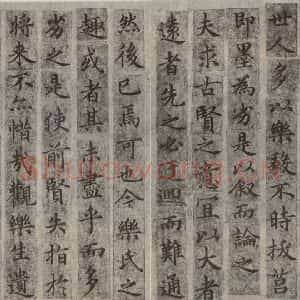 世人多以樂毅不時拔莒
即墨為劣是叙而論之
夫求古賢之意宜以大者
遠者先之必迂迴而難通
然後已焉可也今樂氏之
趣或者其未盡乎而多
劣之是使前賢失指於
將来不亦惜哉觀樂生遺
Shufawang.CN